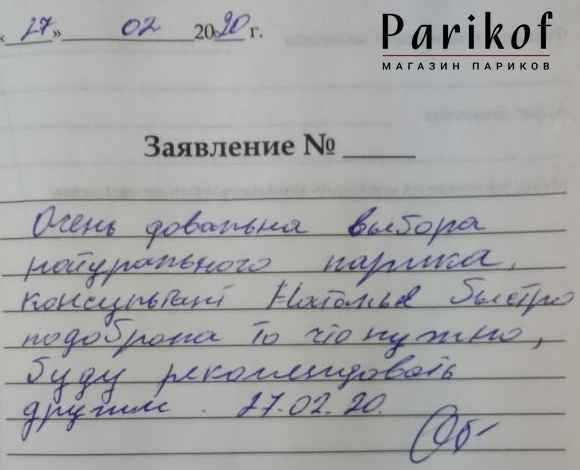 «27» 02 2020 г.
Parikof
МАГАЗИН ПАРИКОВ
Заявление №
Очень довальна выбора
натурального парика,
консультант Наталья быстро
подобрала то что нужно,
буду рекомендовать
другим. 27.02.20.